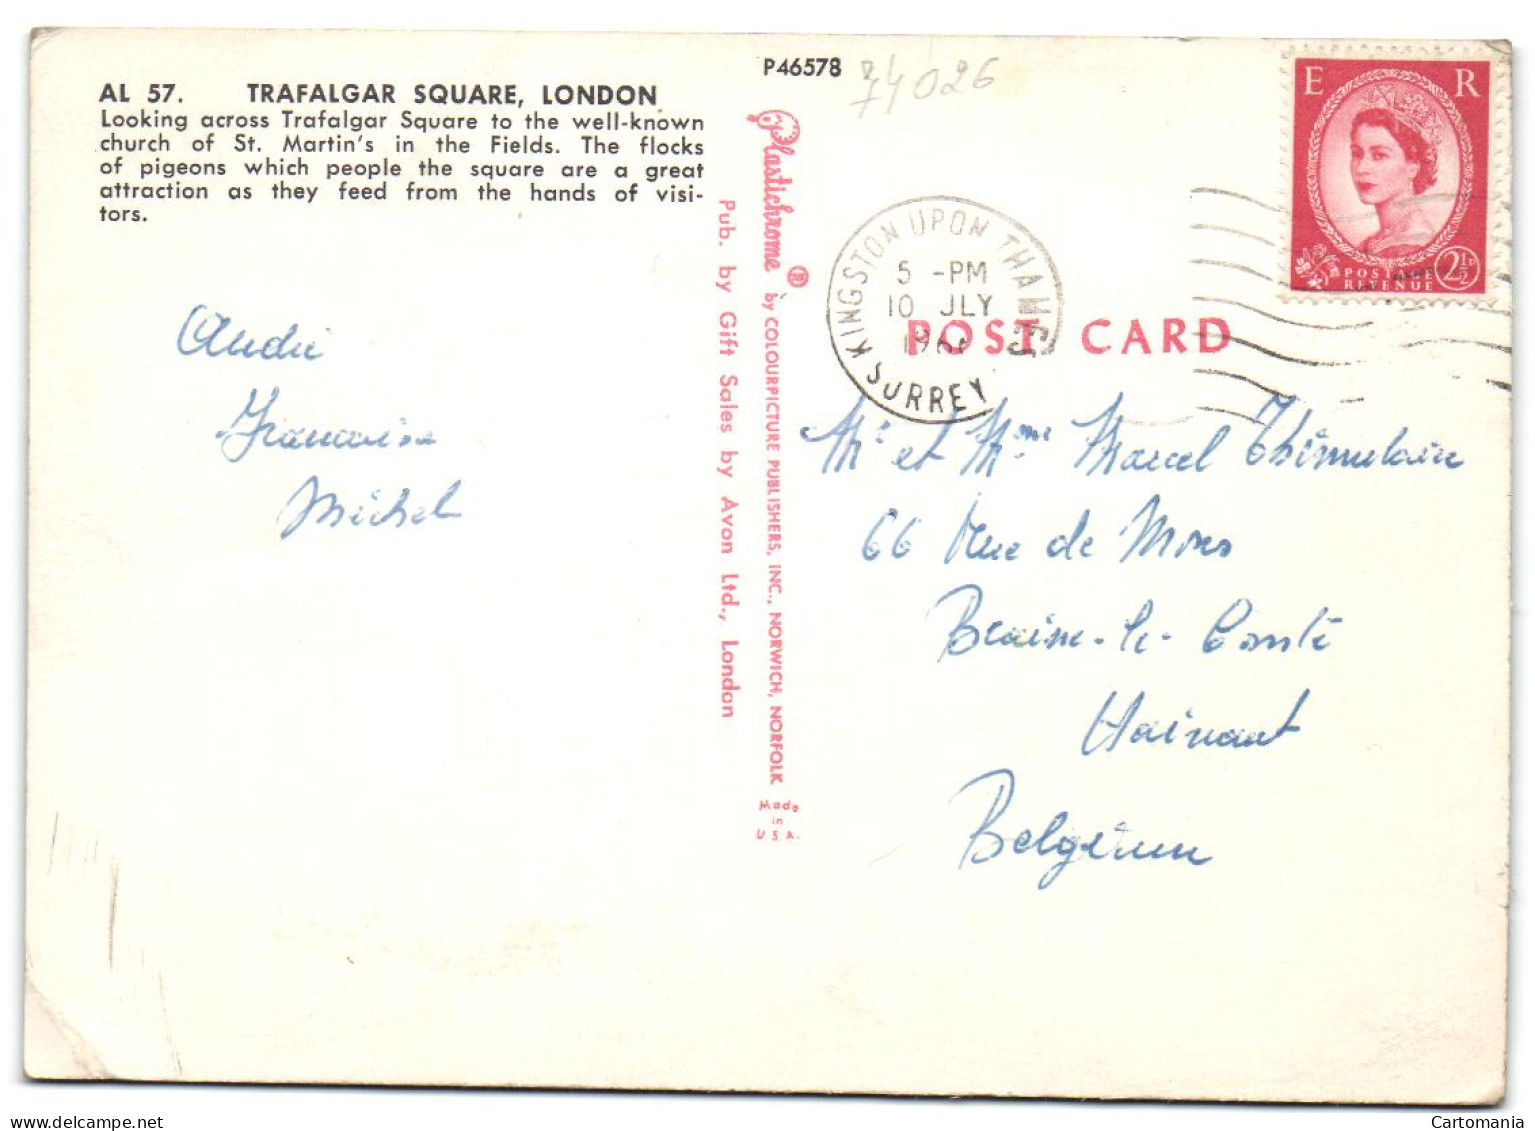 AL 57. TRAFALGAR SQUARE, LONDON
Looking across Trafalgar Square to the well-known
church of St. Martin's in the Fields. The flocks
of pigeons which people the square are a great
attraction as they feed from the hands of visi-
tors.
André
Françoise
Michel
P46578
74026
Plastichrome ® by COLOURPICTURE PUBLISHERS, INC., NORWICH, NORFOLK
Made
in
U.S.A.
Pub. by Gift Sales by Avon Ltd., London
KINGSTON UPON THAMES
5 -PM
10 JLY
SURREY
E R
POSTAGE
REVENUE
2½D
POST CARD
Mr et Mme Marcel
66 Rue de Mons
Braine-le-Comte
Hainaut
Belgium
Cartomania